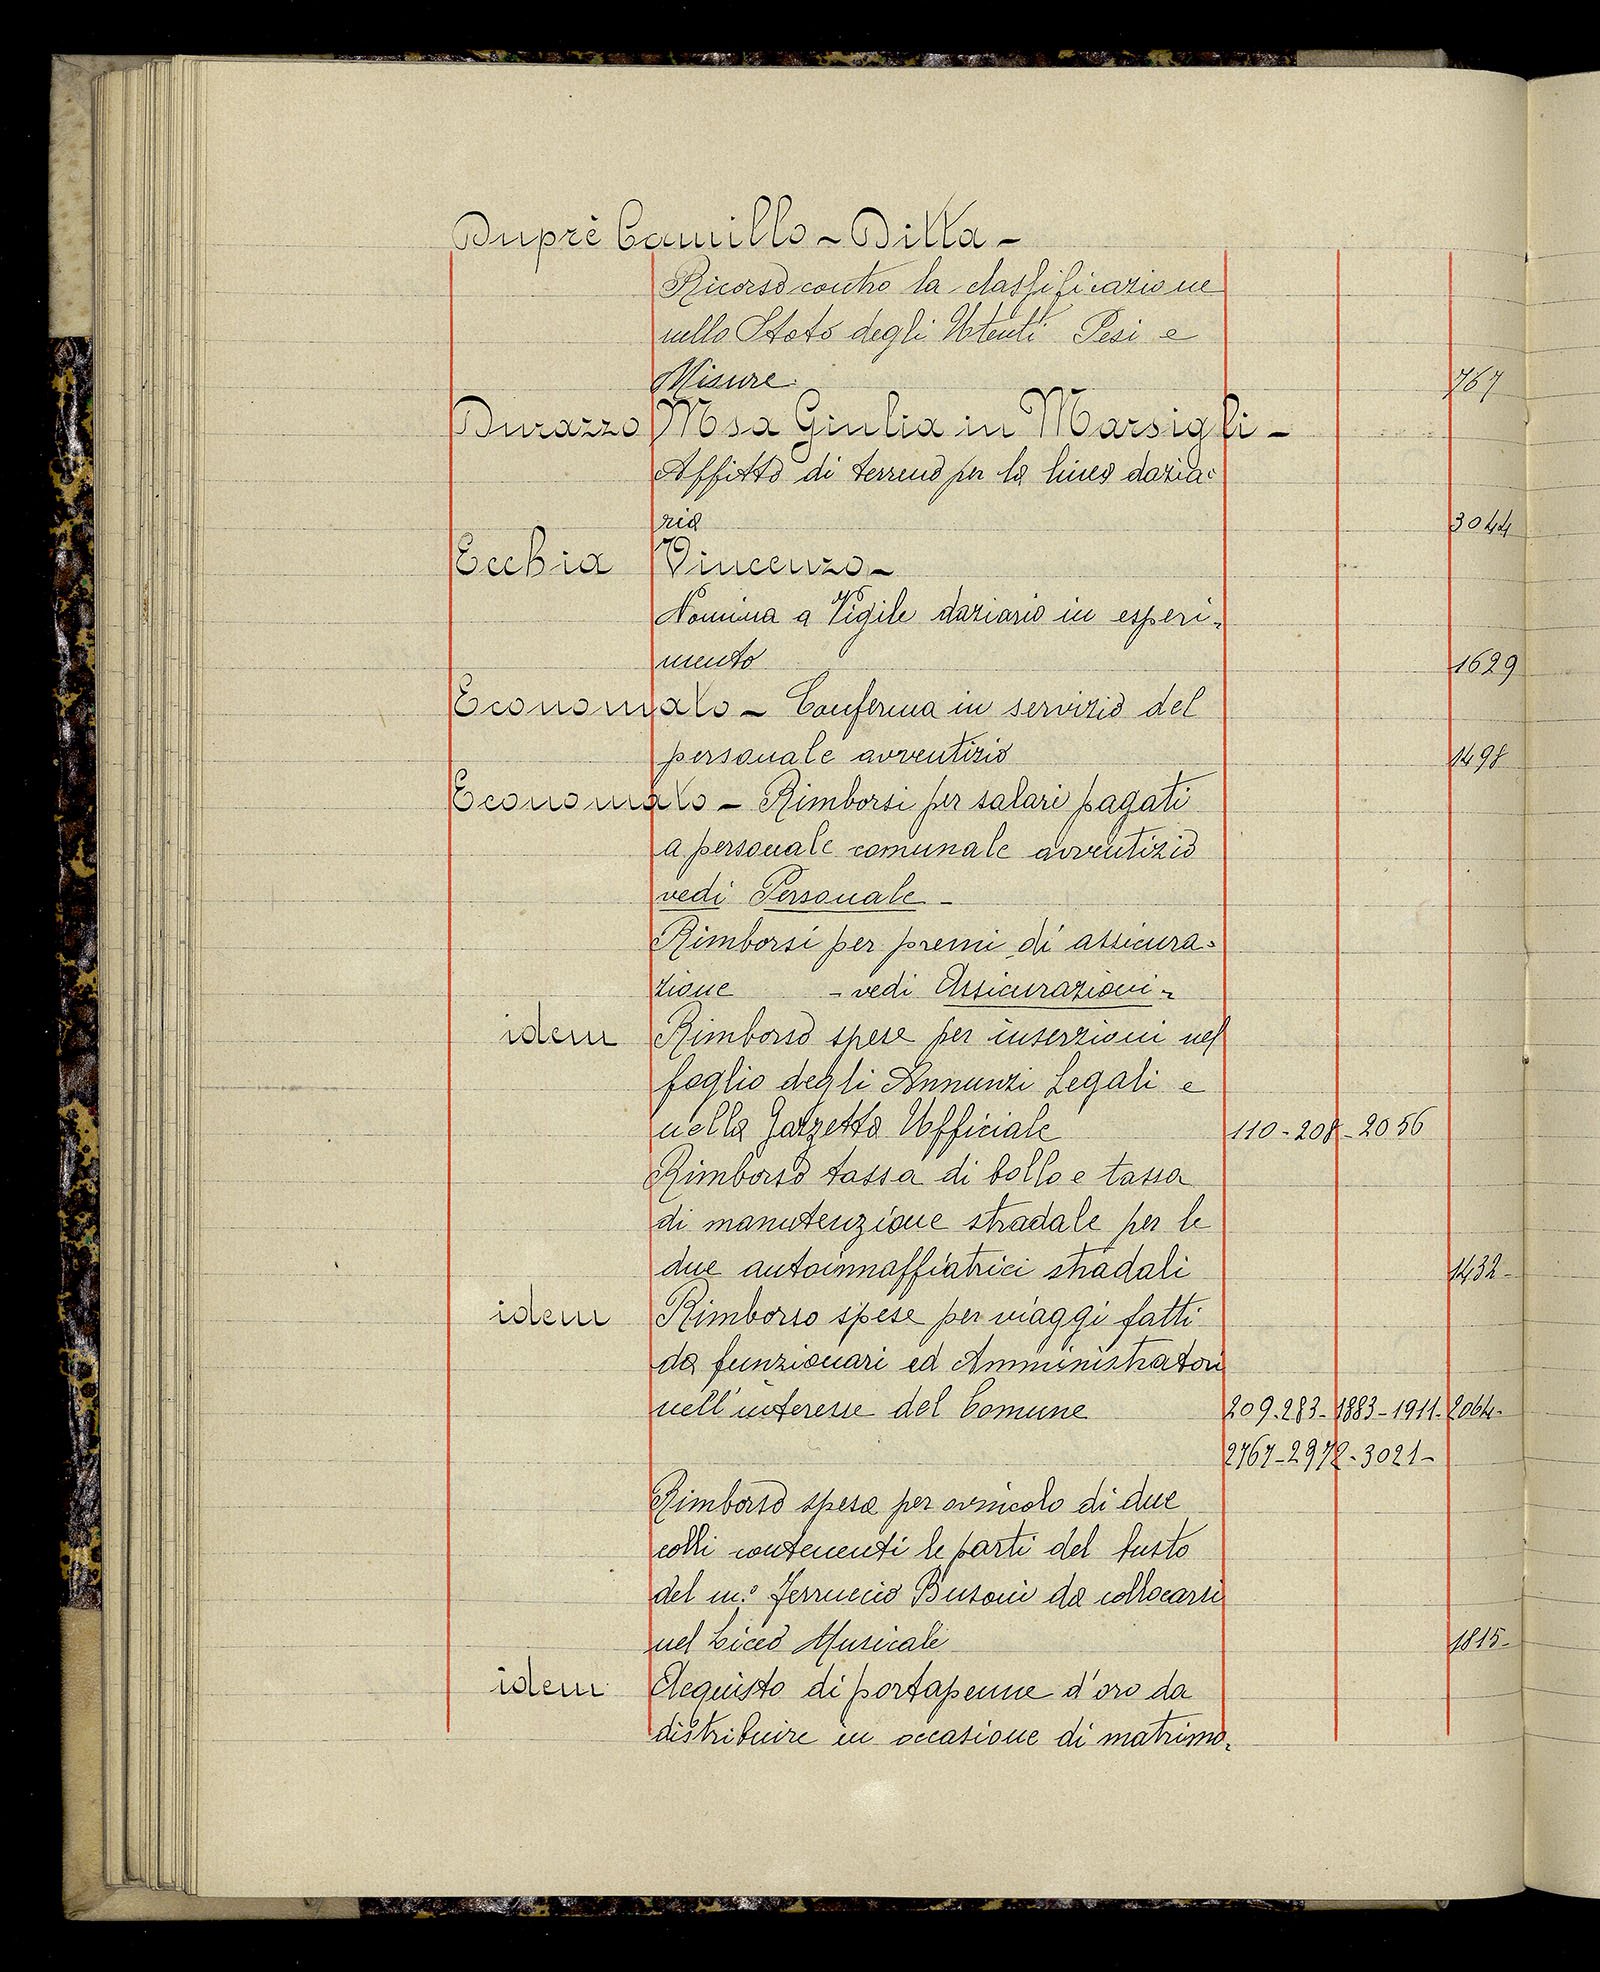 Duprè Camillo - Ditta -
Ricorso contro la classificazione
nello Stato degli Utenti Pesi e
Misure. 767
Durazzo Msa Giulia in Marsigli -
Affitto di terreno per la linea dazia=
ria 3044
Ecchia Vincenzo -
Nomina a Vigile daziario in esperi=
mento 1629
Economato - Conferma in servizio del
personale avventizio 1498
Economato - Rimborsi per salari pagati
a personale comunale avventizio
vedi Personale -
Rimborsi per premi di assicura=
zione - vedi Assicurazioni -
idem Rimborso spese per inserzioni nel
foglio degli Annunzi Legali e
nella Gazzetta Ufficiale 110 - 208 - 2056
Rimborso tassa di bollo e tassa
di manutenzione stradale per le
due autoinnaffiatrici stradali 1432 -
idem Rimborso spese per viaggi fatti
da funzionari ed Amministratori
nell'interesse del Comune 209 - 283 - 1883 - 1911 - 2064 -
2767 - 2972 - 3021 -
Rimborso spesa per svincolo di due
colli contenenti le parti del busto
del m.° Ferruccio Busoni da collocarsi
nel Liceo Musicale 1815 -
idem Acquisto di portapenne d'oro da
distribuire in occasione di matrimo=